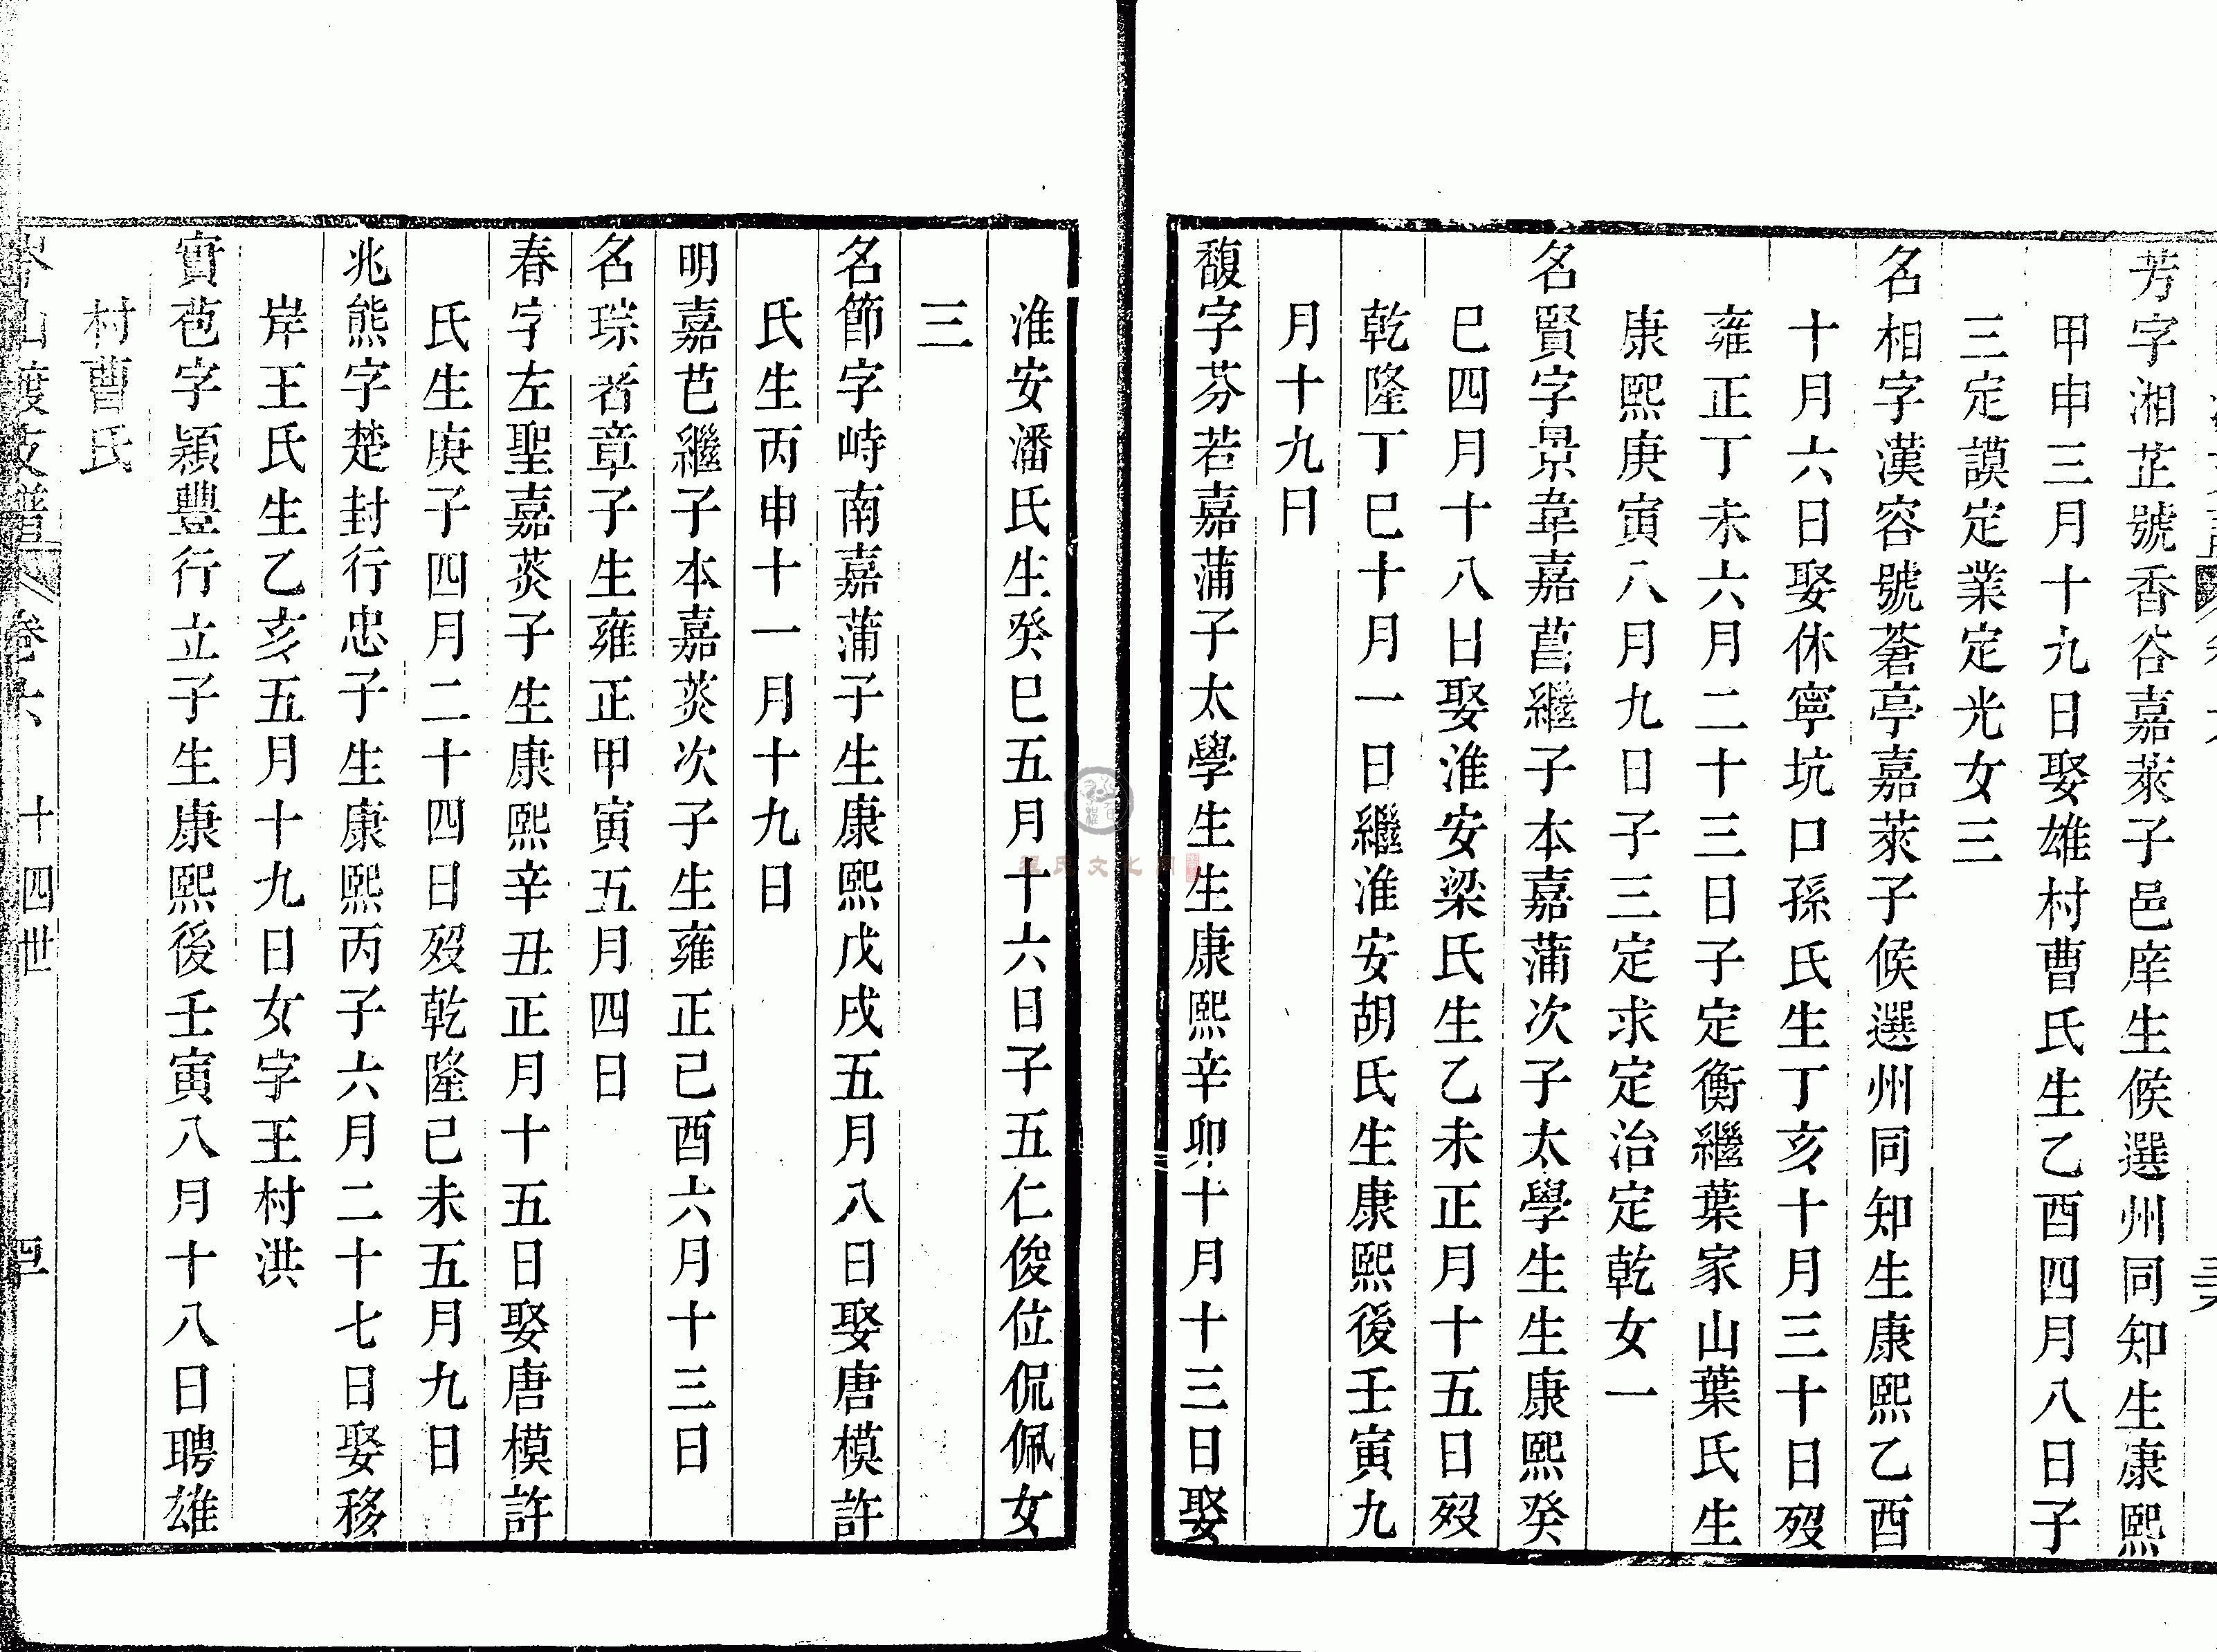 芳字湘芷號香谷嘉萊子邑庠生候選州同知生康熙
甲申三月十九日娶雄村曹氏生乙酉四月八日子
三定謨定業定光女三
名相字漢容號蒼亭嘉萊子候選州同知生康熙乙酉
十月六日娶休寧坑口孫氏生丁亥十月三十日歿
雍正丁未六月二十三日子定衡繼葉家山葉氏生
康熙庚寅八月九日子三定求定治定乾女一
名賢字景韋嘉菖繼子本嘉蒲次子太學生生康熙癸
巳四月十八日娶淮安梁氏生乙未正月十五日歿
乾隆丁巳十月一日繼淮安胡氏生康熙後壬寅九
月十九日
馥字芬若嘉蒲子太學生生康熙辛卯十月十三日娶
淮安潘氏生癸巳五月十六日子五仁俊位侃佩女
三
名節字峙南嘉蒲子生康熙戊戌五月八日娶唐模許
氏生丙申十一月十九日
明嘉芑繼子本嘉菼次子生雍正己酉六月十三日
名琮嘉章子生雍正甲寅五月四日
春字左聖嘉菼子生康熙辛丑正月十五日娶唐模許
氏生庚子四月二十四日歿乾隆己未五月九日
兆熊字楚封行忠子生康熙丙子六月二十七日娶移
岸王氏生乙亥五月十九日女字王村洪
實苞字穎豐行立子生康熙後壬寅八月十八日聘雄
村曹氏
岑山渡支譜 卷六 十四世